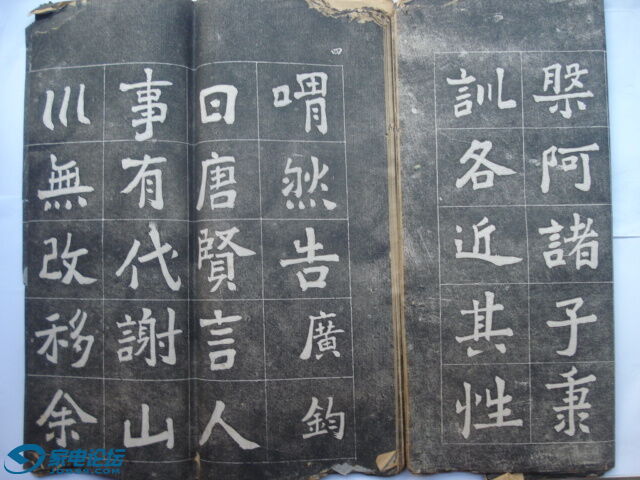 槃阿諸子秉
訓各近其性
四
喟然告廣鈞
曰唐賢言人
事有代謝山
川無改移余
家电论坛